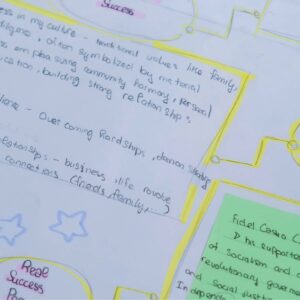 Success
ess in my culture - traditional values like family,
, often symbolized by material
emphasizing community harmony, personal
ucation, building strong relationships
- Overcoming hardships, demon
lationships - business, life revolve
connections (friends, family,
Real
Success
Fidel Castro C
of Socialism and
revolutionary governme
and Social
Independe